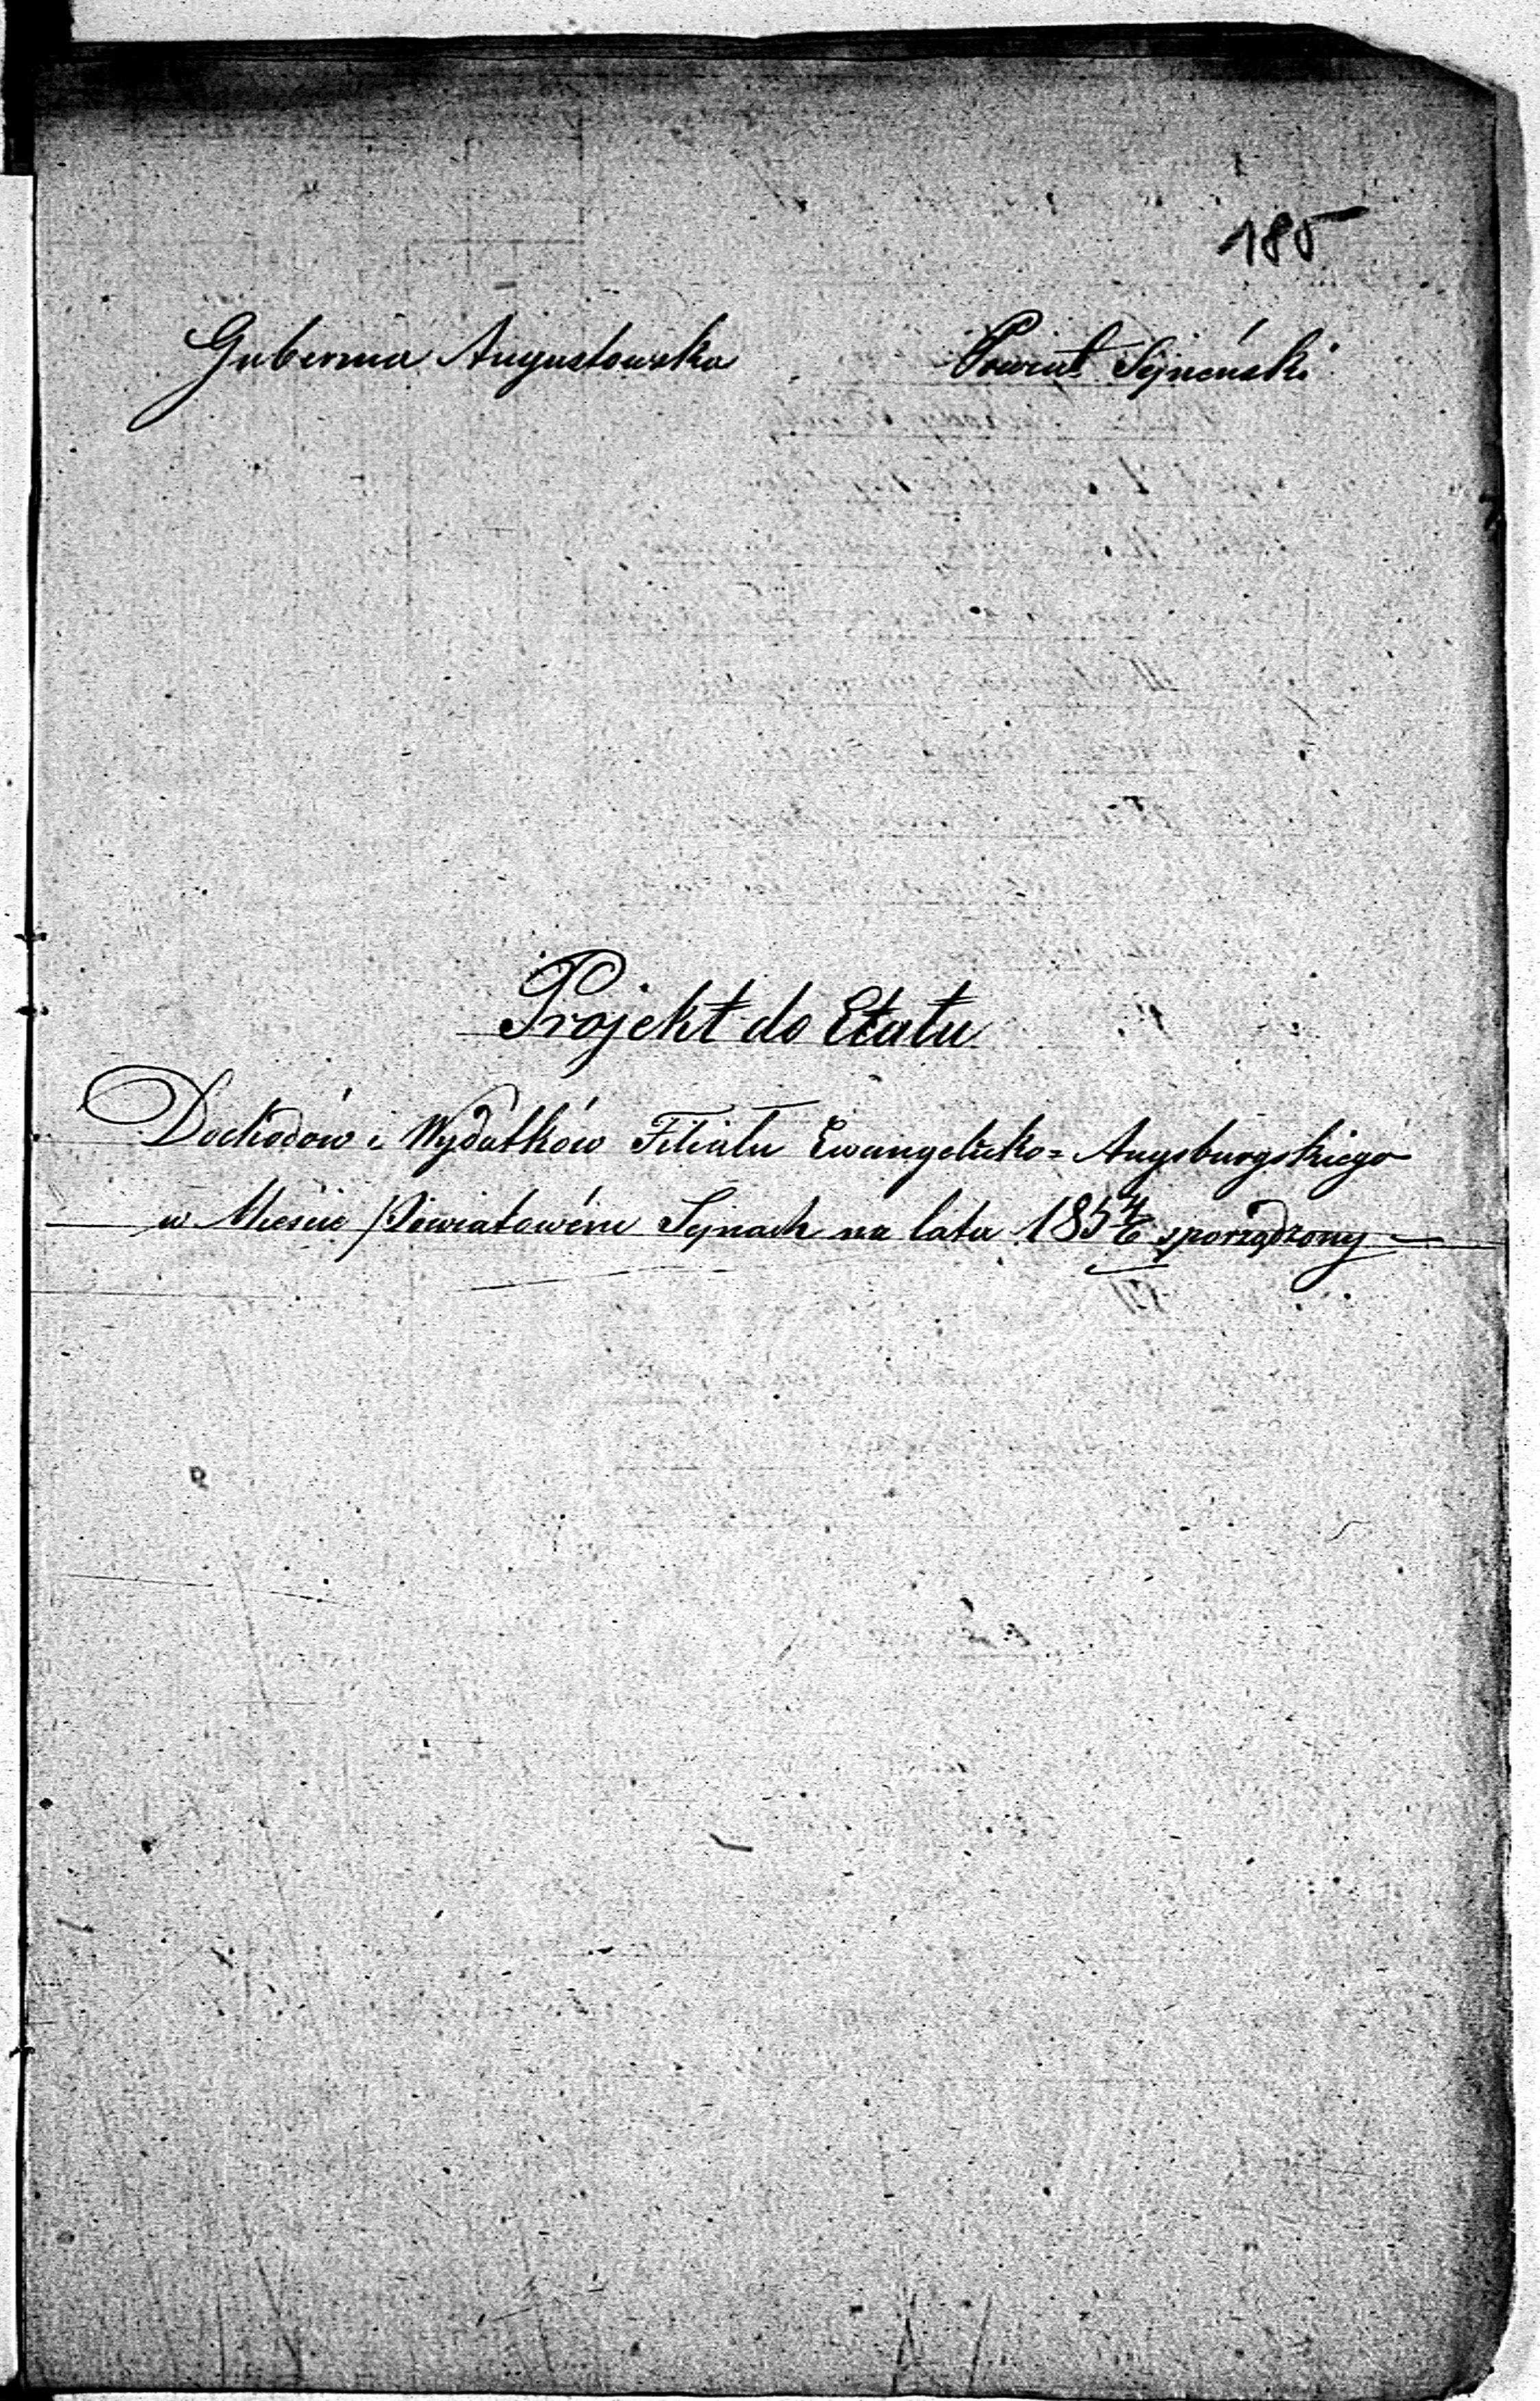 185
Gubernia Augustowska Powiat Sejneński
Projekt do Etatu
Dochodów i Wydatków Filiału Ewangelicko= Augsburgskiego
w Mieście Powiatowém Sejnach na lata 185 4/6 sporządzony